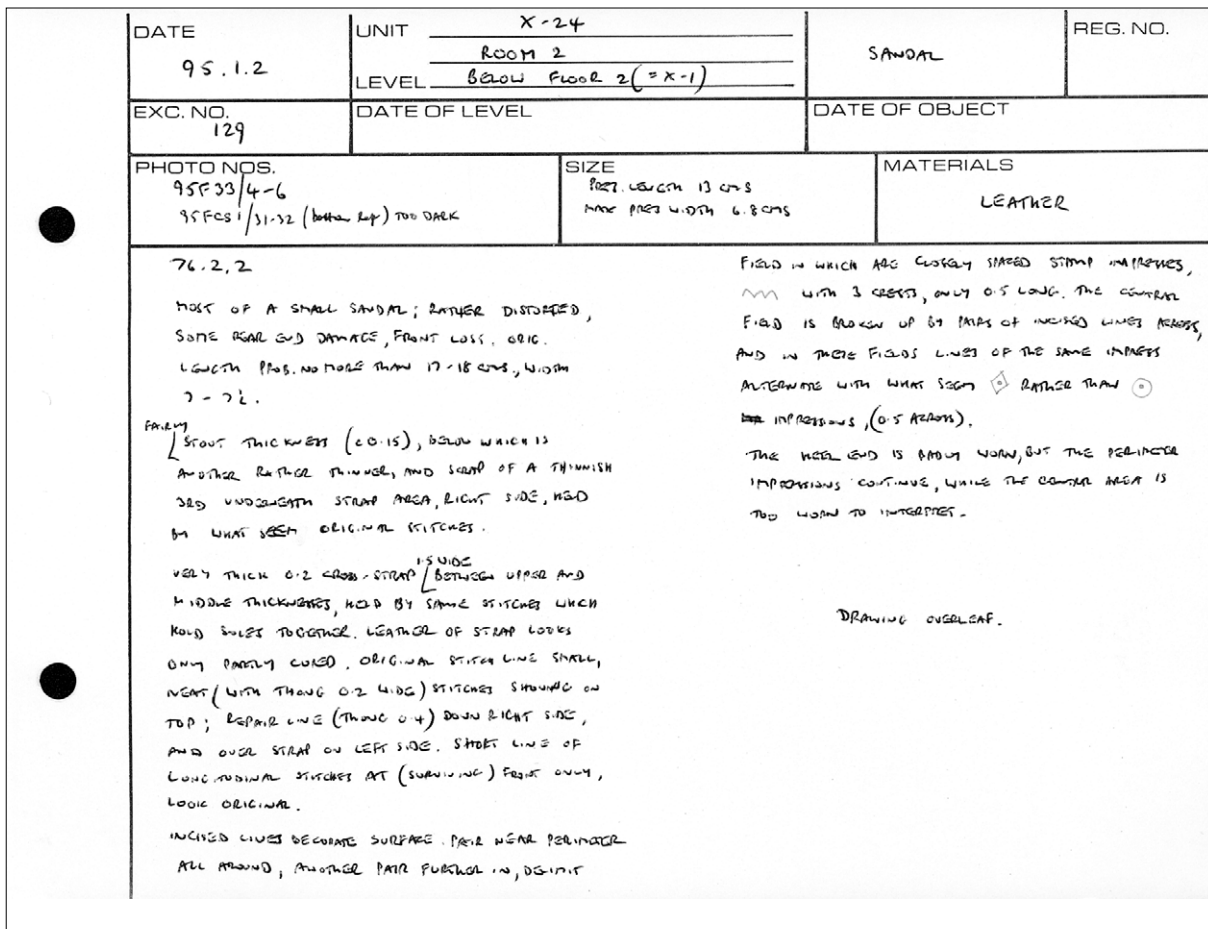 DATE
95.1.2
UNIT X-24
ROOM 2
LEVEL BELOW FLOOR 2 (=X-1)
SANDAL
REG. NO.
EXC. NO.
129
DATE OF LEVEL
DATE OF OBJECT
PHOTO NOS.
95F33/4-6
95FCS1/31-32 (bottom Rep) TOO DARK
SIZE
PRES. LENGTH 13 CMS
MAX PRES WIDTH 6.8 CMS
MATERIALS
LEATHER
76.2.2
MOST OF A SMALL SANDAL; RATHER DISTORTED,
SOME REAR END DAMAGE, FRONT LOSS. ORIG.
LENGTH PROB. NO MORE THAN 17-18 CMS., WIDTH
7 - 7½.
FAIRLY
STOUT THICKNESS (c0.15), BELOW WHICH IS
ANOTHER RATHER THINNER, AND SCRAP OF A THINNISH
3RD UNDERNEATH STRAP AREA, RIGHT SIDE, HELD
BY WHAT SEEM ORIGINAL STITCHES.
1.5 WIDE
VERY THICK 0.2 CROSS-STRAP BETWEEN UPPER AND
MIDDLE THICKNESSES, HELD BY SAME STITCHES WHICH
HOLD SOLES TOGETHER. LEATHER OF STRAP LOOKS
ONLY PARTLY CURED. ORIGINAL STITCH LINE SMALL,
NEAT (WITH THONG 0.2 WIDE) STITCHES SHOWING ON
TOP; REPAIR LINE (THONG 0.4) DOWN RIGHT SIDE,
AND OVER STRAP ON LEFT SIDE. SHORT LINE OF
LONGITUDINAL STITCHES AT (SURVIVING) FRONT ONLY,
LOOK ORIGINAL.
INCISED LINES DECORATE SURFACE. PAIR NEAR PERIMETER
ALL AROUND, ANOTHER PAIR FURTHER IN, DELIMIT
FIELD IN WHICH ARE CLOSELY SPACED STAMP IMPRESSES,
WITH 3 CRESTS, ONLY 0.5 LONG. THE CENTRAL
FIELD IS BROKEN UP BY PAIRS OF INCISED LINES ACROSS,
AND IN THESE FIELDS LINES OF THE SAME IMPRESS
ALTERNATE WITH WHAT SEEM RATHER THAN
IMPRESSIONS, (0.5 ACROSS).
THE HEEL END IS BADLY WORN, BUT THE PERIMETER
IMPRESSIONS CONTINUE, WHILE THE CENTRAL AREA IS
TOO WORN TO INTERPRET.
DRAWING OVERLEAF.